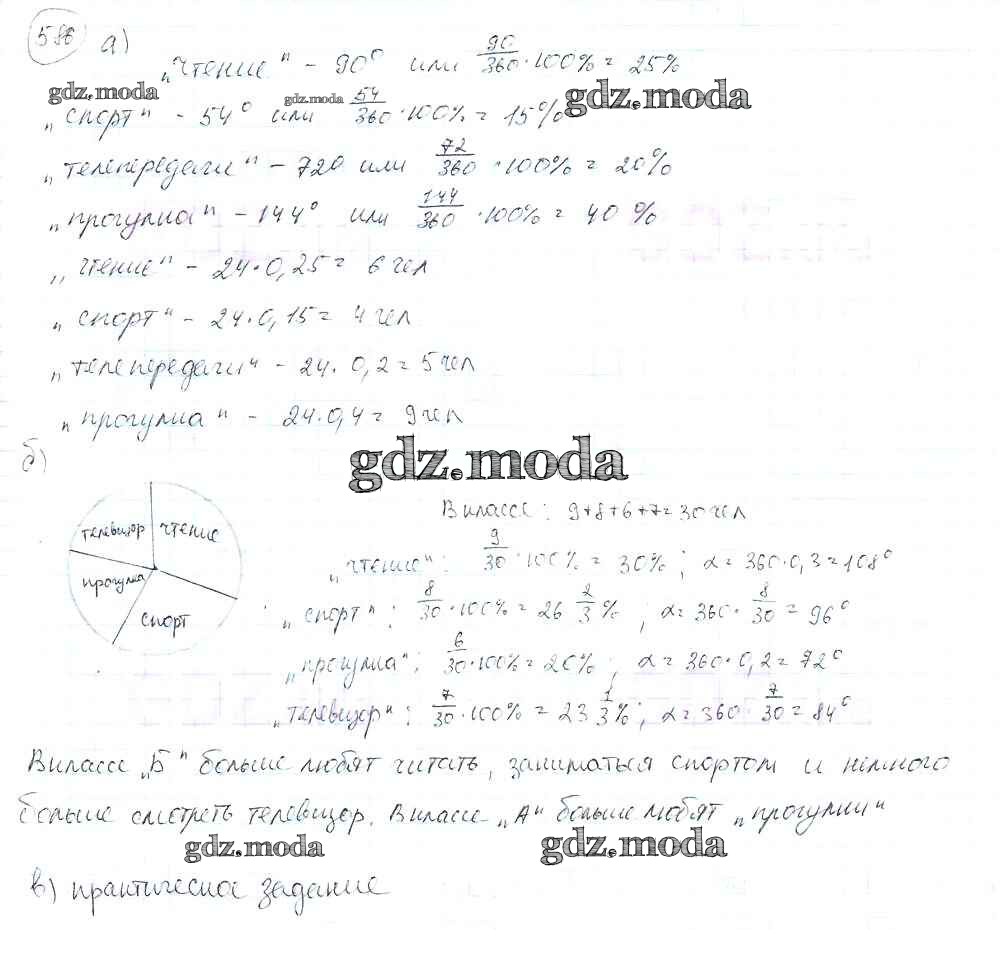 586 а)
„чтение" - 90° или 90/360 · 100% = 25%
gdz.moda gdz.moda gdz.moda
„спорт" - 54° или 54/360 · 100% = 15%
„телепередачи" - 720 или 72/360 · 100% = 20%
„прогулка" - 144° или 144/360 · 100% = 40%
„чтение" - 24·0,25 = 6 чел
„спорт" - 24·0,15 = 4 чел
„телепередачи" - 24·0,2 = 5 чел
„прогулка" - 24·0,4 = 9 чел
б)
gdz.moda
телевизор чтение
прогулка
спорт
В классе: 9+8+6+7=30 чел
„чтение": 9/30 · 100% = 30%; α = 360·0,3 = 108°
„спорт": 8/30 · 100% = 26 2/3 %; α = 360 · 8/30 = 96°
„прогулка": 6/30 · 100% = 20%; α = 360·0,2 = 72°
„телевизор": 7/30 · 100% = 23 1/3 %; α = 360 · 7/30 = 84°
В классе „Б" больше любят читать, заниматься спортом и немного
больше смотреть телевизор. В классе „А" больше любят „прогулки"
gdz.moda gdz.moda
в) практическое задание